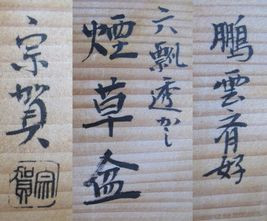 鵬雲斎好
六瓢透かし
煙草盆
宗賀
宗賀